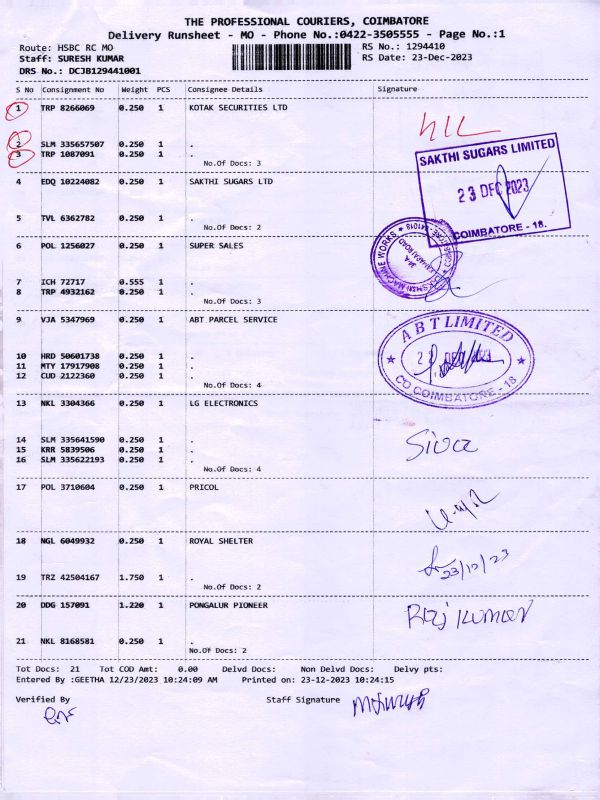 THE PROFESSIONAL COURIERS, COIMBATORE
Delivery Runsheet - MO - Phone No.:0422-3505555 - Page No.:1
Route: HSBC RC MO RS No.: 1294410
Staff: SURESH KUMAR RS Date: 23-Dec-2023
DRS No.: DCJB129441001
S No Consignment No Weight PCS Consignee Details Signature
1 TRP 8266069 0.250 1 KOTAK SECURITIES LTD
2 SLM 335657507 0.250 1 .
3 TRP 1087091 0.250 1 .
No.Of Docs: 3
SAKTHI SUGARS LIMITED
23 DEC 2023
COIMBATORE - 18.
4 EDQ 10224082 0.250 1 SAKTHI SUGARS LTD
5 TVL 6362782 0.250 1 .
No.Of Docs: 2
6 POL 1256027 0.250 1 SUPER SALES
7 ICH 72717 0.555 1 .
8 TRP 4932162 0.250 1 .
No.Of Docs: 3
9 VJA 5347969 0.250 1 ABT PARCEL SERVICE
A B T LIMITED
10 HRD 50601738 0.250 1 .
11 MTY 17917908 0.250 1 .
12 CUD 2122360 0.250 1 .
No.Of Docs: 4
CO COIMBATORE - 18
13 NKL 3304366 0.250 1 LG ELECTRONICS
14 SLM 335641590 0.250 1 .
15 KRR 5839506 0.250 1 .
16 SLM 335622193 0.250 1 .
No.Of Docs: 4
Siva
17 POL 3710604 0.250 1 PRICOL
18 NGL 6049932 0.250 1 ROYAL SHELTER
23/12/23
19 TRZ 42504167 1.750 1 .
No.Of Docs: 2
20 DDG 157091 1.220 1 PONGALUR PIONEER
Raj Kumar
21 NKL 8168581 0.250 1 .
No.Of Docs: 2
Tot Docs: 21 Tot COD Amt: 0.00 Delvd Docs: Non Delvd Docs: Delvy pts:
Entered By :GEETHA 12/23/2023 10:24:09 AM Printed on: 23-12-2023 10:24:15
Verified By Staff Signature